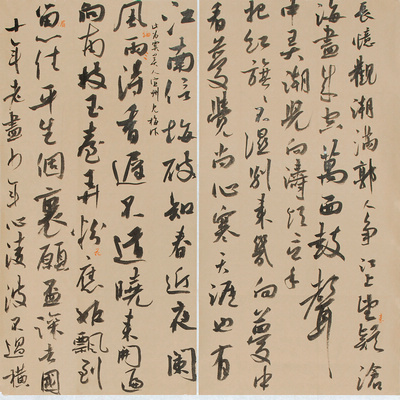 長憶觀潮滿郭人爭江上望疑滄
海盡成空萬面鼓聲
中弄潮兒向濤頭立手
把紅旗々不濕別來幾向夢中
看夢覺尚心寒天涯也有
江南信梅破知春近夜闌
山谷虞美人宜州見梅作
風細得香遲不道曉來開遍
向南枝玉臺弄粉應妒飄到
眉心住平生個裏願盃深去國
十年老盡少年心淩波不過橫